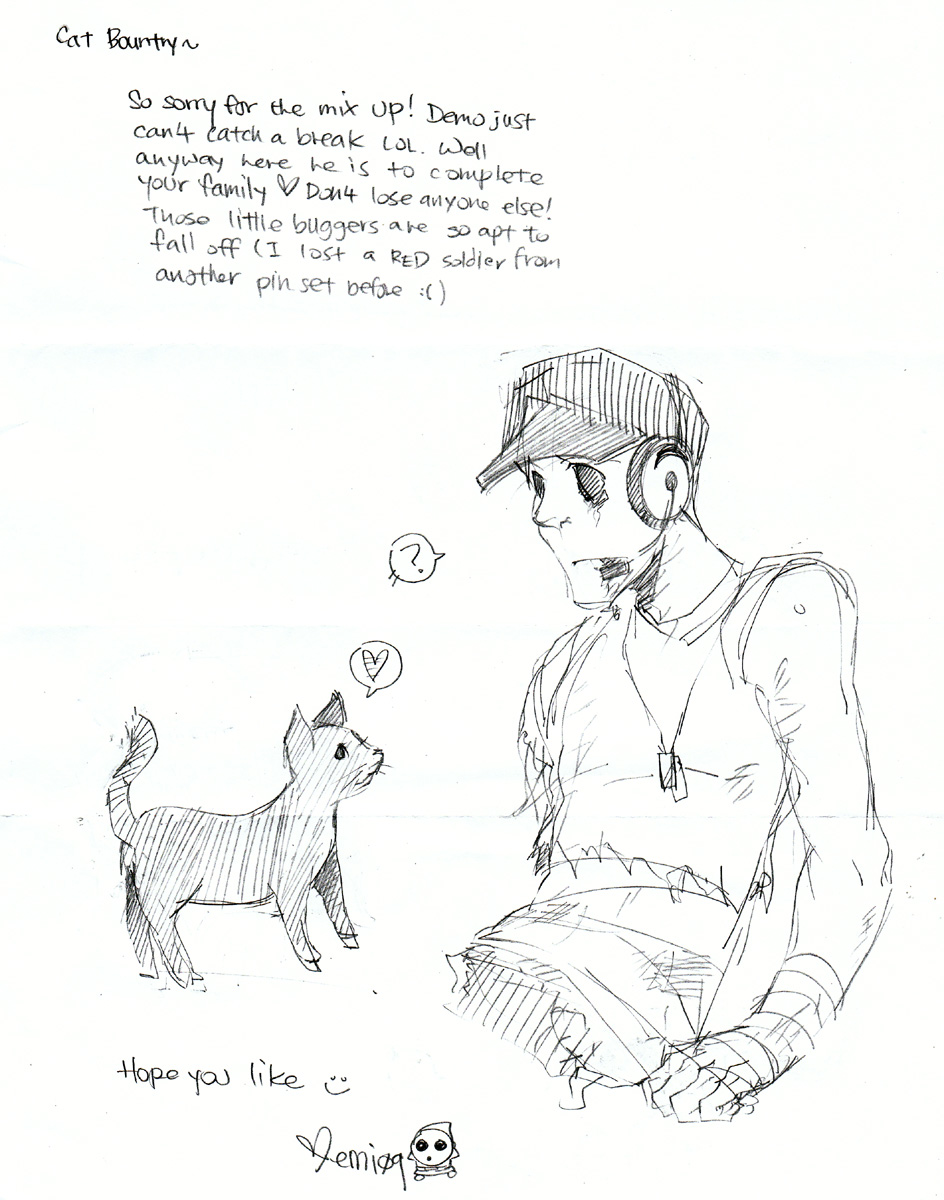 Cat Bountry~
So sorry for the mix up! Demo just
can4 catch a break LOL. Well
anyway here he is to complete
your family ♡ Don4 lose anyone else!
Those little buggers are so apt to
fall off (I lost a RED soldier from
another pin set before :()
?
Hope you like :)
♡emiøq